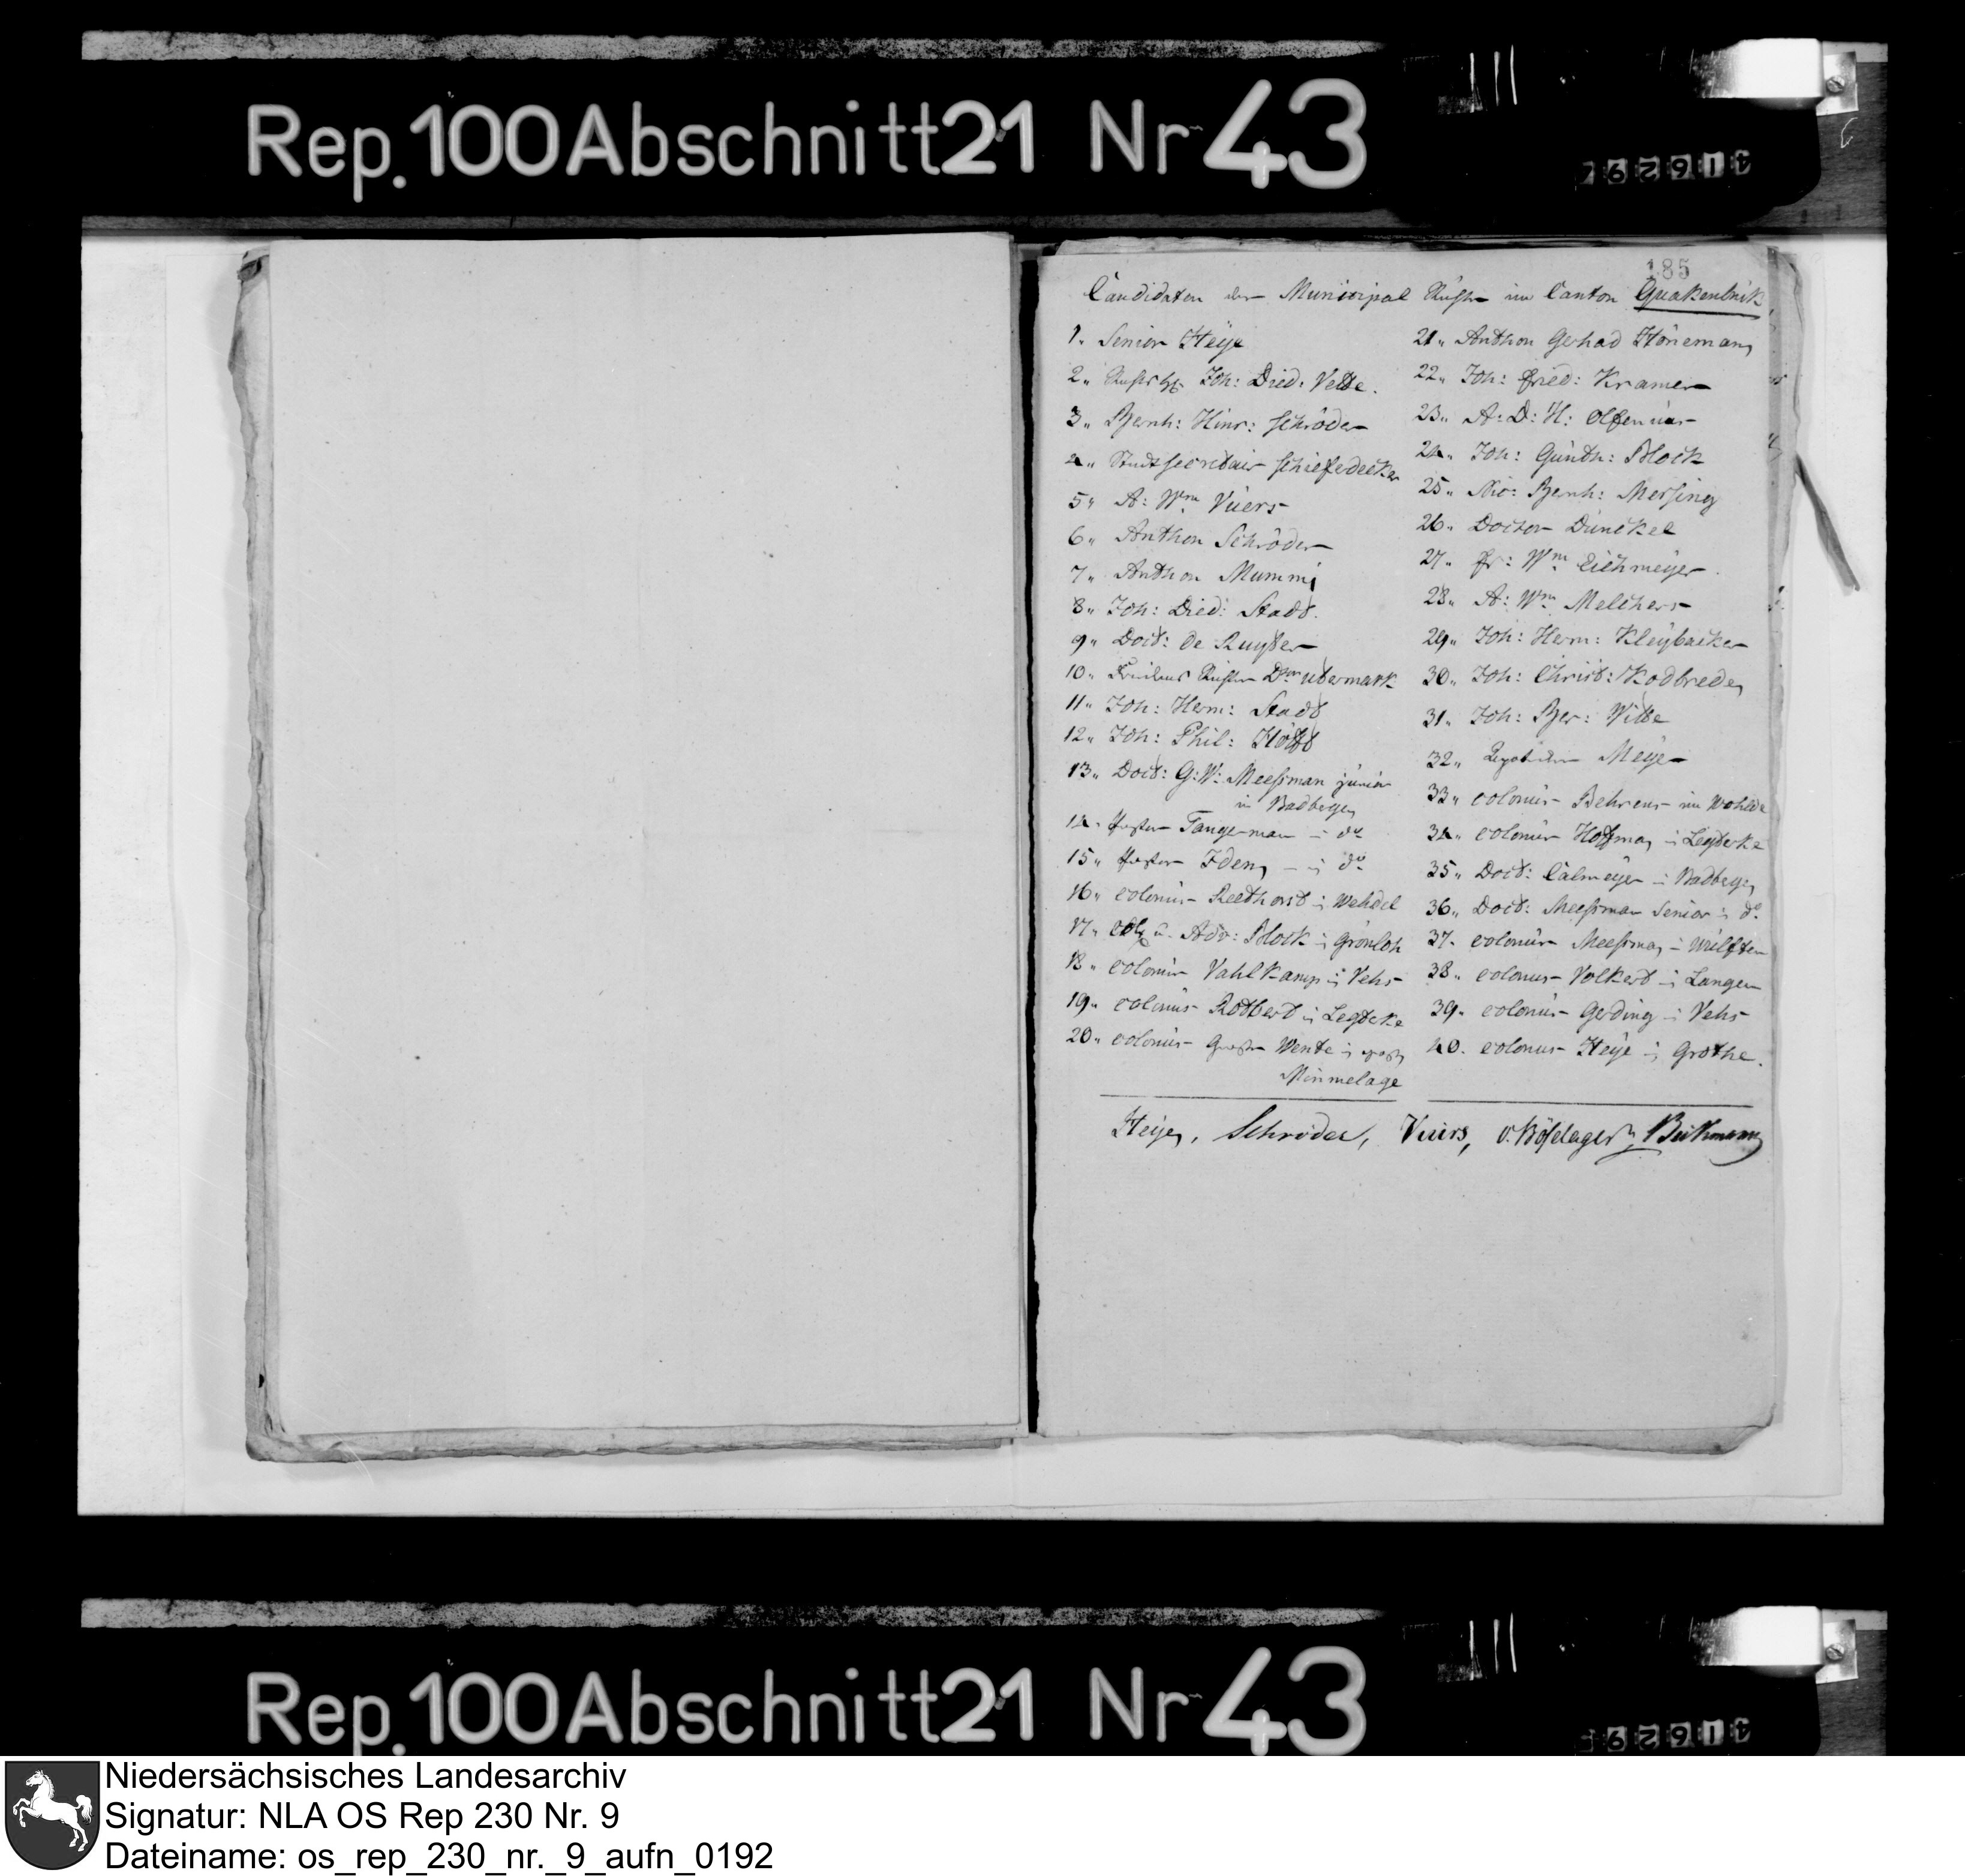 Rep.100Abschnitt21 Nr 43
41629
185
Candidaten der Municipal Räthe im Canton Quakenbrük
1. Senior Heye
2. Joh: Died: Vette.
3. Bernh: Hinr: Schröder
4. Stadtsecretair Schiefedecker
5. A: Wm Vüers
6. Anthon Schröder
7. Anthon Mummi
8. Joh: Died: Stadt.
9. Doct: de Ruyter
10. Friedens Richter Dor: utermark
11. Joh: Herm: Stadt
12. Joh: Phil: Höfft
13. Doct: G: W: Meessman junior
in Badbergen
14. Pastor Tangeman in do
15. Pastor Iden in do
16. colonus Reethorst in Wehdel
17. u. Adv: Block in Grönloh
18. colonus Vahlkamp in Vehs
19. colonus Rotbert in Legteke
20. colonus Grosse Wente in gross
Mimmelage
21. Anthon Gerhad Hönemann
22. Joh: Fried: Kramer
23. A: D: H: Olfenius
24. Joh: Günth: Block
25. Nic: Bernh: Mersing
26. Doctor Dünckel
27. Fr: Wm Eichmeyer.
28. A: Wm Melchers
29. Joh: Herm: Kleybœcker
30. Joh: Christ: Kodbrede
31. Joh: Ber: Witte
32. Meyer
33. colonus Behrens im Wohlde
34. colonus Hoffman in Legterke
35. Doct: Calmeyer in Badbergen
36. Doct: Meessman Senior in do.
37. colonus Meessman in Wulften
38. colonus Volkert in Langen
39. colonus Gerding in Vehs
40. colonus Heye in Grothe.
Heye, Schröder, Vuers, v. Böselager, Beckmann
Rep.100Abschnitt21 Nr 43
41629
Niedersächsisches Landesarchiv
Signatur: NLA OS Rep 230 Nr. 9
Dateiname: os_rep_230_nr._9_aufn_0192